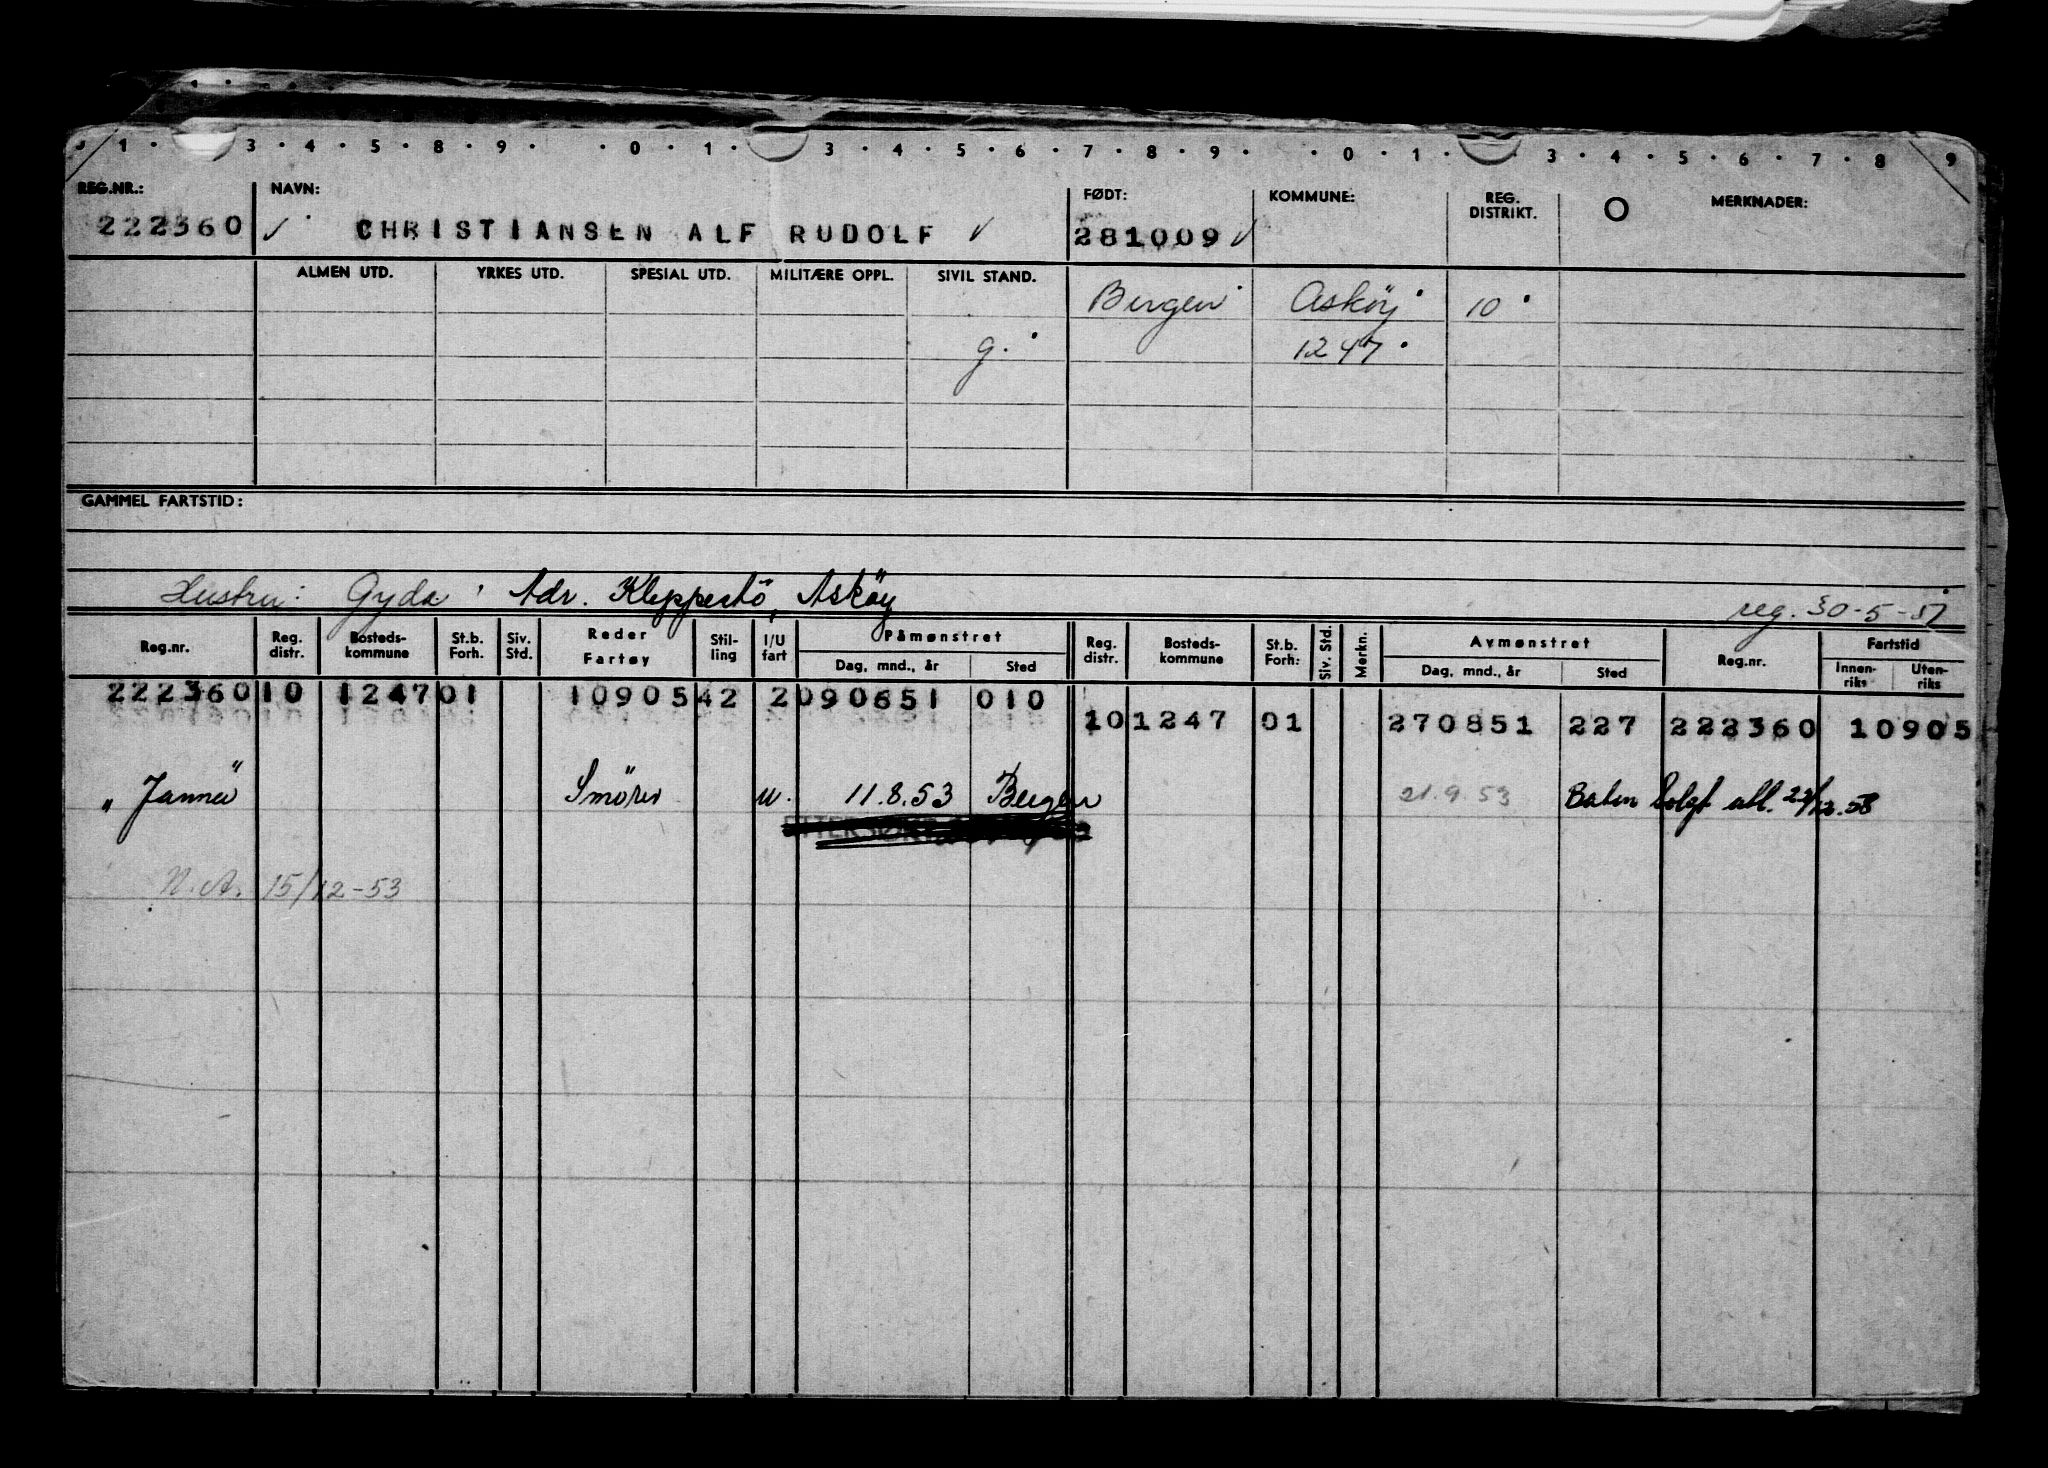 1 · 3 · 4 · 5 · 8 · 9 · · 0 · 1 · 3 · 4 · 5 · 6 · 7 · 8 · 9 · · 0 · 1 · 3 · 4 · 5 · 6 · 7 · 8 9
REG.NR.: NAVN: FØDT: KOMMUNE: REG. DISTRIKT. O MERKNADER:
222360 CHRISTIANSEN ALF RUDOLF 281009
ALMEN UTD. YRKES UTD. SPESIAL UTD. MILITÆRE OPPL. SIVIL STAND.
Bergen Asköy 10
g. 1247
GAMMEL FARTSTID:
Hustru: Gyda Adr. Kleppestö, Asköy reg. 30-5-51
Reg.nr. Reg. distr. Bosteds- kommune St.b. Forh. Siv. Std. Reder Fartøy Stil- ling I/U fart Påmønstret Dag, mnd., år Sted Reg. distr. Bosteds- kommune St.b. Forh: Siv. Std. Merkn. Avmønstret Dag, mnd., år Sted Reg.nr. Fartstid Innen- riks Uten- riks
222360 10 1247 01 10905 42 2 090651 010
10 1247 01 270851 227 222360 10905
"Janna" Smörer u. 11.8.53 Bergen 21.9.53 Baten solgt
N.A. 15/12-53